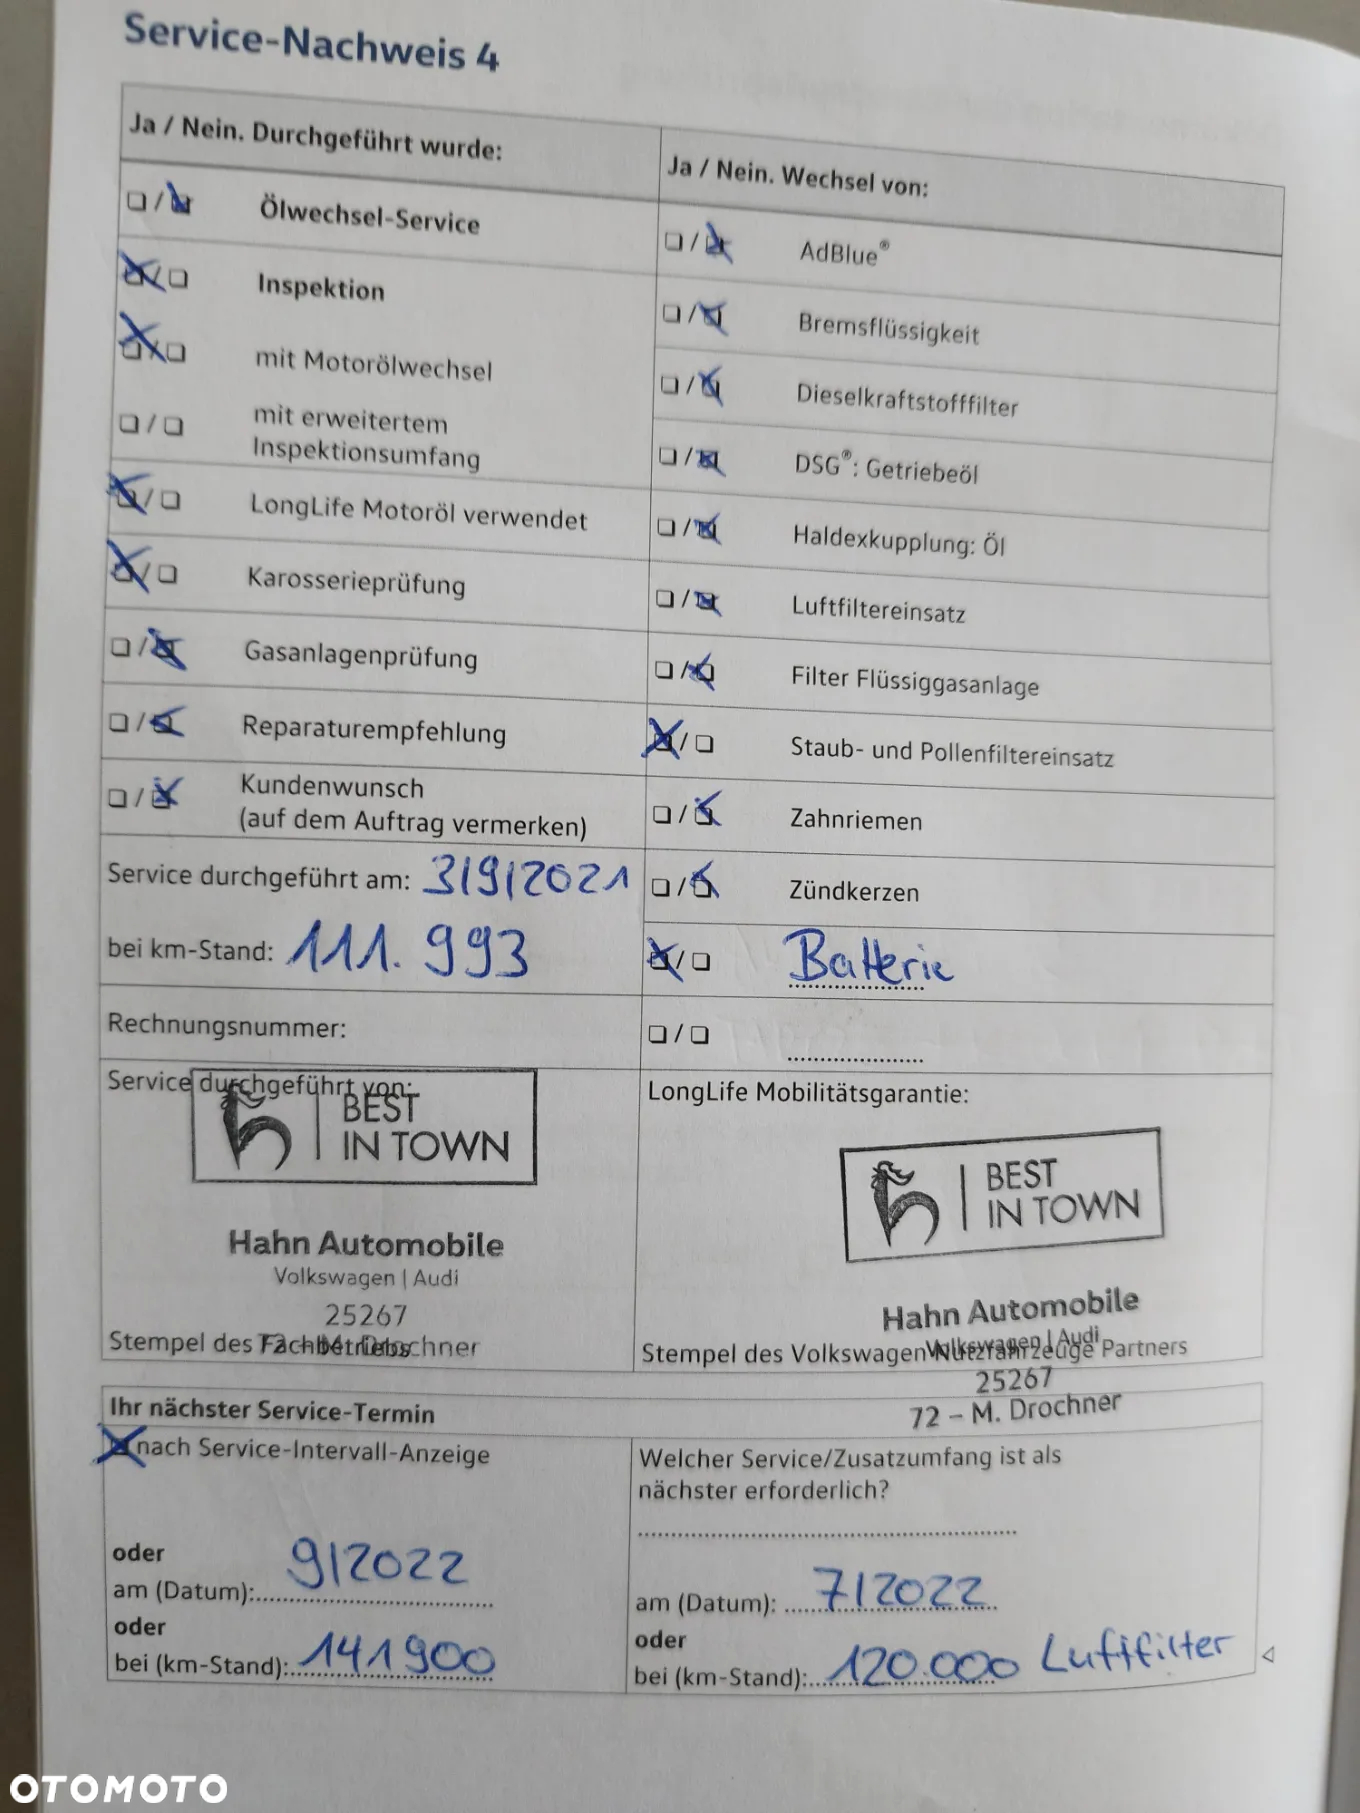 Service-Nachweis 4
Ja / Nein. Durchgeführt wurde:
Ölwechsel-Service
Inspektion
mit Motorölwechsel
mit erweitertem
Inspektionsumfang
LongLife Motoröl verwendet
Karosserieprüfung
Gasanlagenprüfung
Reparaturempfehlung
Kundenwunsch
(auf dem Auftrag vermerken)
Service durchgeführt am: 3/9/2021
bei km-Stand: 111.993
Rechnungsnummer:
Ja / Nein. Wechsel von:
AdBlue®
Bremsflüssigkeit
Dieselkraftstofffilter
DSG®: Getriebeöl
Haldexkupplung: Öl
Luftfiltereinsatz
Filter Flüssiggasanlage
Staub- und Pollenfiltereinsatz
Zahnriemen
Zündkerzen
Batterie
Service durchgeführt von:
BEST
IN TOWN
Hahn Automobile
Volkswagen | Audi
25267
72 - M. Drochner
Stempel des Fachbetriebs
LongLife Mobilitätsgarantie:
BEST
IN TOWN
Hahn Automobile
Volkswagen | Audi
Stempel des Volkswagen Nutzfahrzeuge Partners
25267
72 – M. Drochner
Ihr nächster Service-Termin
nach Service-Intervall-Anzeige
oder
am (Datum): 9/2022
oder
bei (km-Stand): 141900
Welcher Service/Zusatzumfang ist als
nächster erforderlich?
am (Datum): 7/2022
oder
bei (km-Stand): 120.000 Luftfilter
OTOMOTO